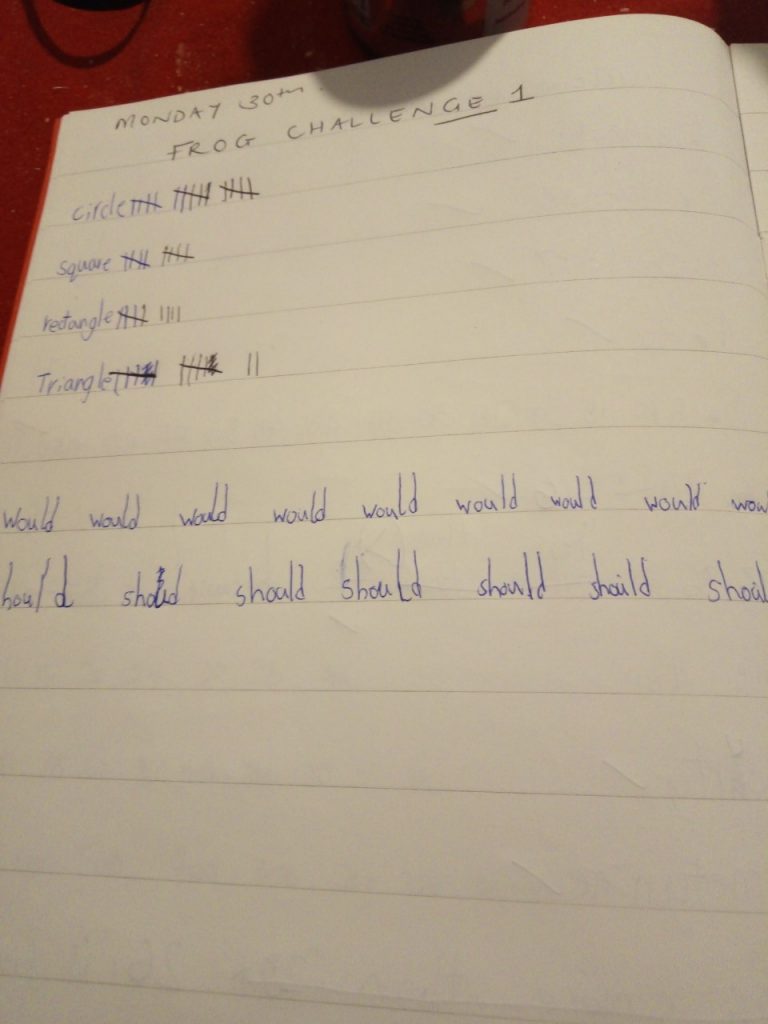 MONDAY 30th
FROG CHALLENGE 1
circle
square
rectangle
Triangle
would would would would would would would would wou
hould should should should should should shoul